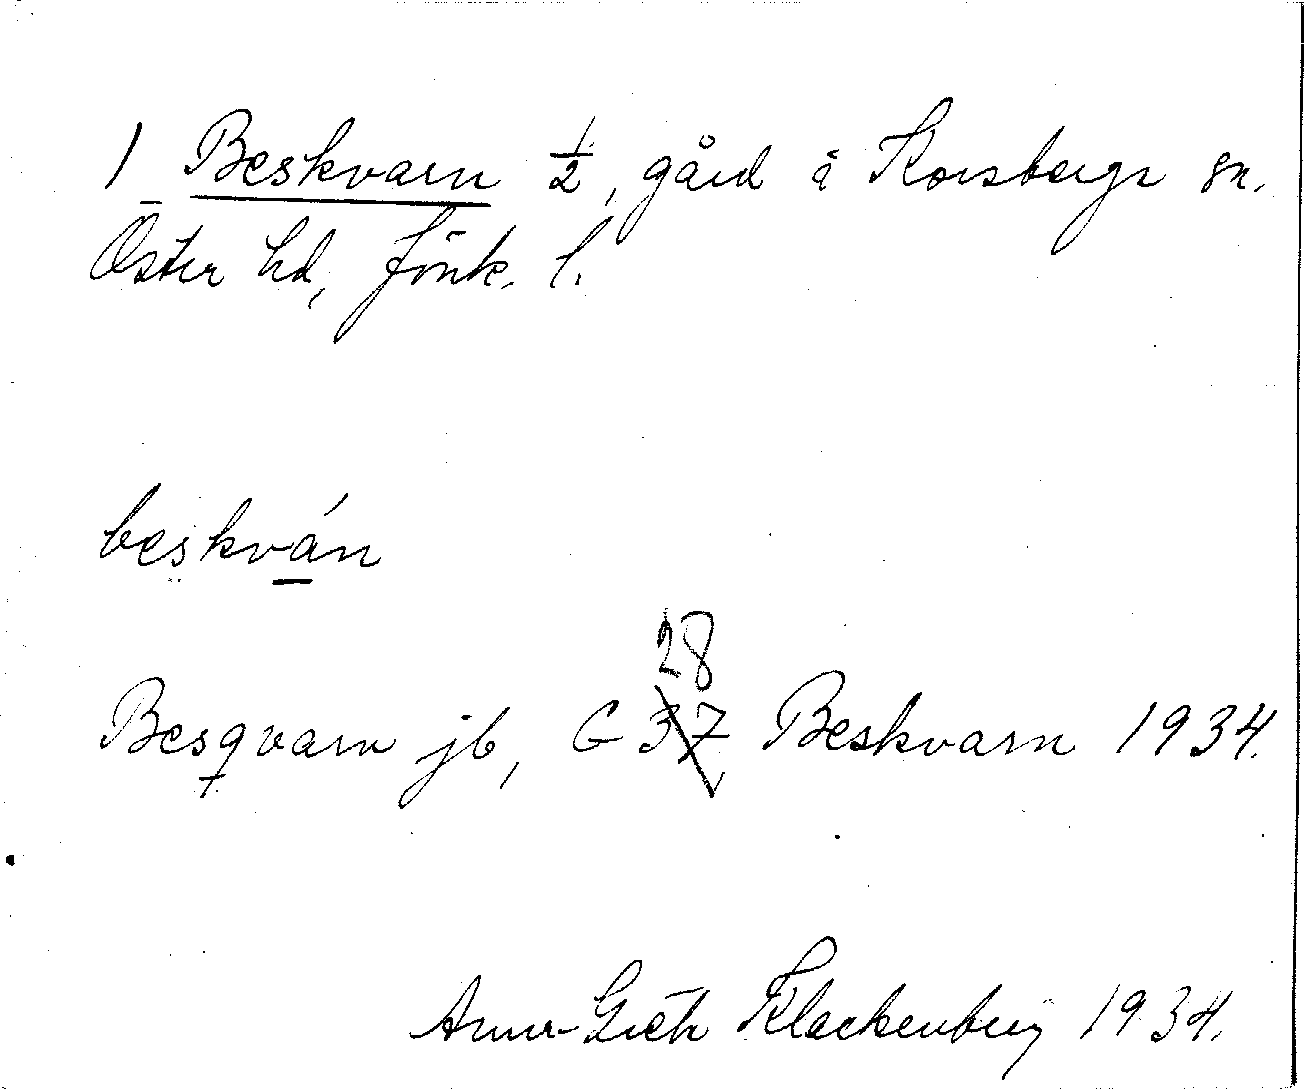 1 Beskvarn 1/2, gård i Korsberga sn.
Öster hd, Jönk. l.
beskván
28
Besqvarn jb, G 37 Beskvarn 1934.
Anna-Greta Klackenberg 1934.